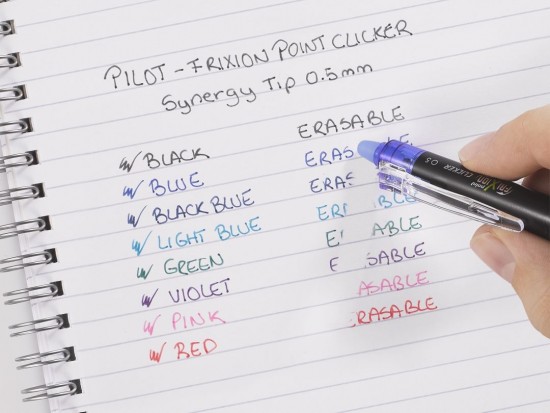 PILOT - FRIXION POINT CLICKER
Synergy Tip 0.5mm
ERASABLE
BLACK ERAS E
BLUE ERAS
BLACK BLUE ER BLE
LIGHT BLUE E ABLE
GREEN E SABLE
VIOLET ASABLE
PINK RASABLE
RED
FriXion CLICKER 0.5